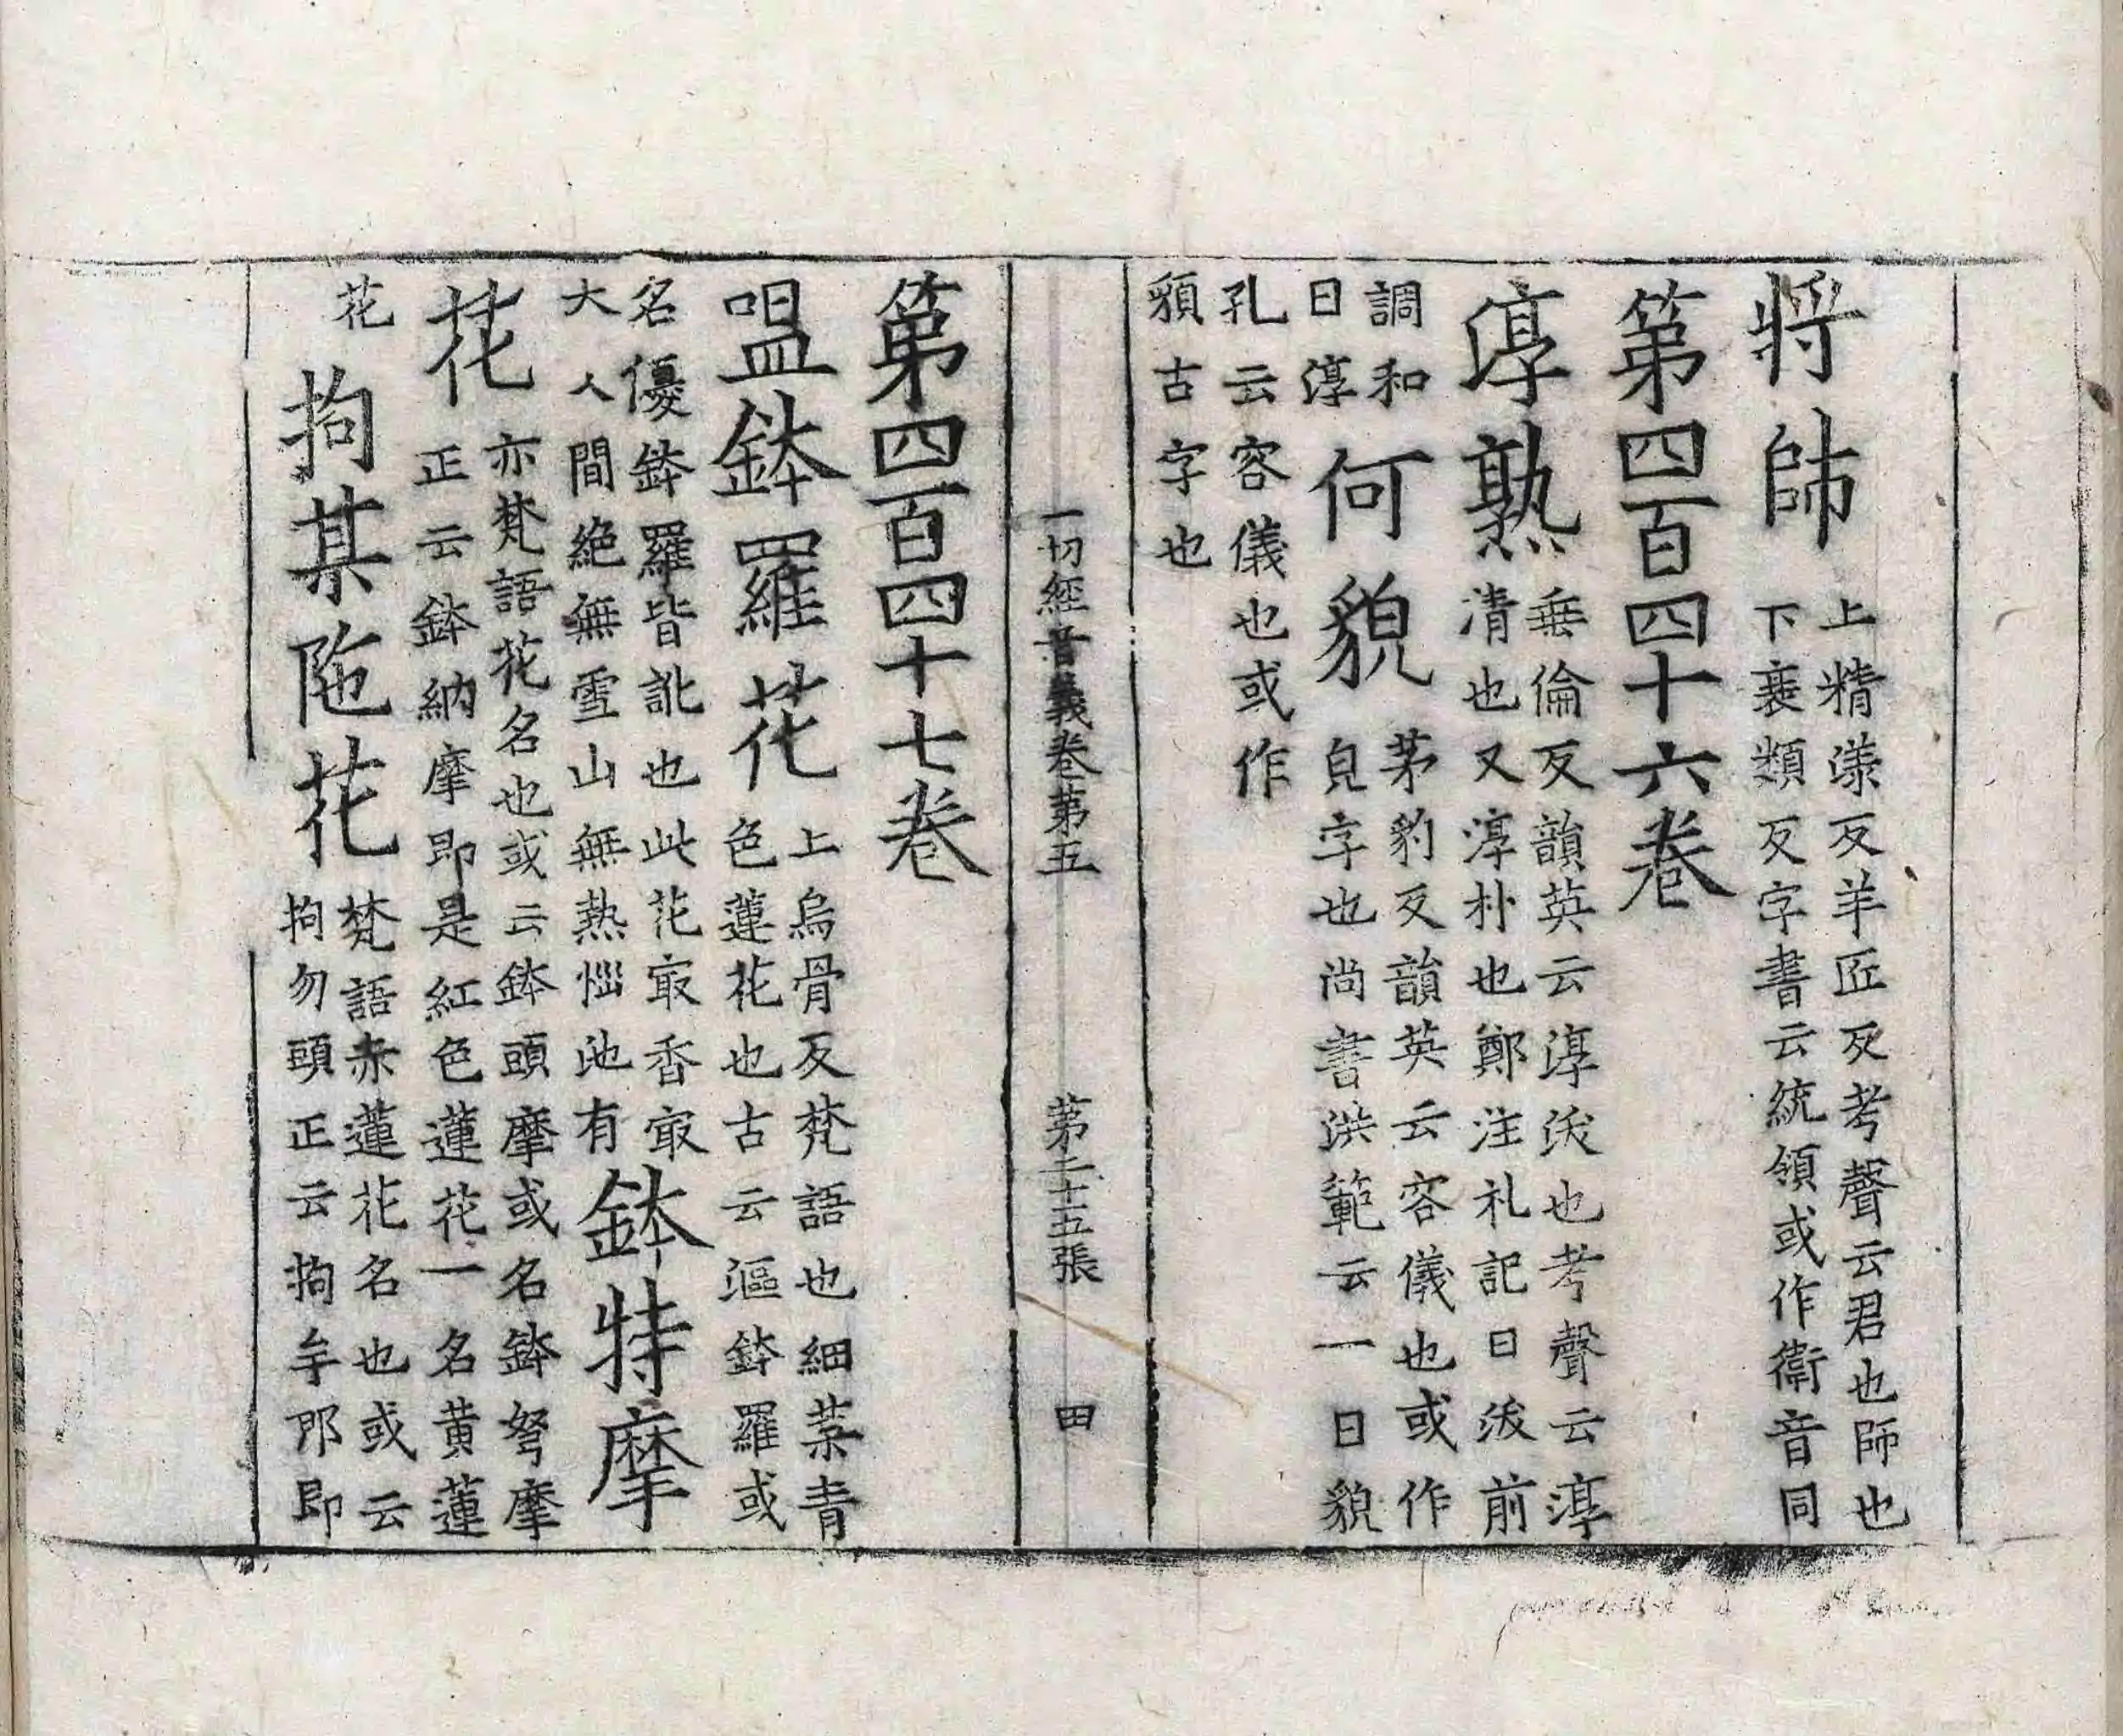 將帥上精漾反羊匠反考聲云君也師也
下衰類反字書云統領或作衛音同
第四百四十六卷
淳熟垂倫反韻英云淳浓也考聲云淳
清也又淳朴也鄭注礼記曰浓前
調和
曰淳
何貌茅豹反韻英云容儀也或作
皃字也尚書洪範云一曰貌
孔云容儀也或作
䫉古字也
一切經音義卷第五 第二十五張 田
第四百四十七卷
嗢鉢羅花上烏骨反梵語也細葉青
色蓮花也古云漚鉢羅或
名優鉢羅皆訛也此花㝡香㝡
大人間絶無雪山無熱惱池有
鉢特摩
花亦梵語花名也或云鉢頭摩或名鉢弩摩
正云鉢納摩即是紅色蓮花一名黄蓮
花
拘某陁花梵語赤蓮花名也或云
拘勿頭正云拘牟那即